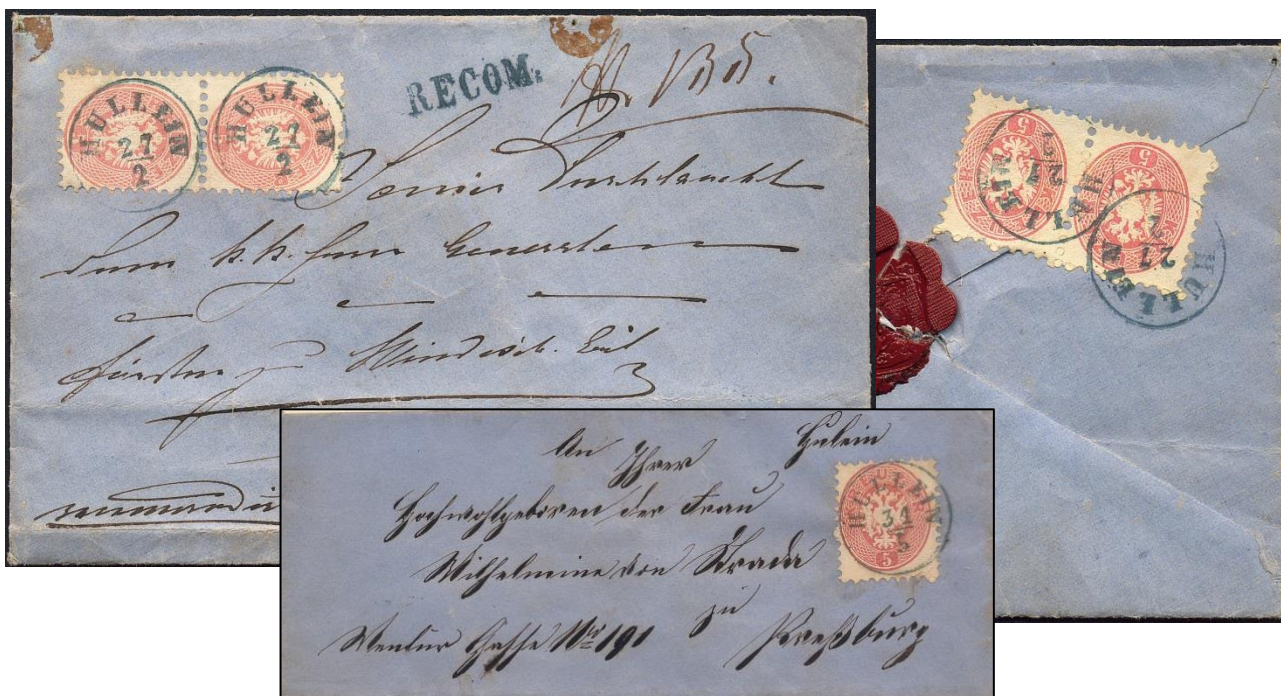 HULLEIN
27
2
HULLEIN
27
2
RECOM.
Seiner Durchlaucht
dem k. k. Herrn Generalen
Fürsten zu Windisch
HULLEIN
27
2
HULLEIN
27
2
5
5
An Ihrer Hulein
Hochwohlgeboren der Frau
Wilhelmine von Strada
zu
Gasse Nro 191 Preßburg
HULLEIN
31
5
5